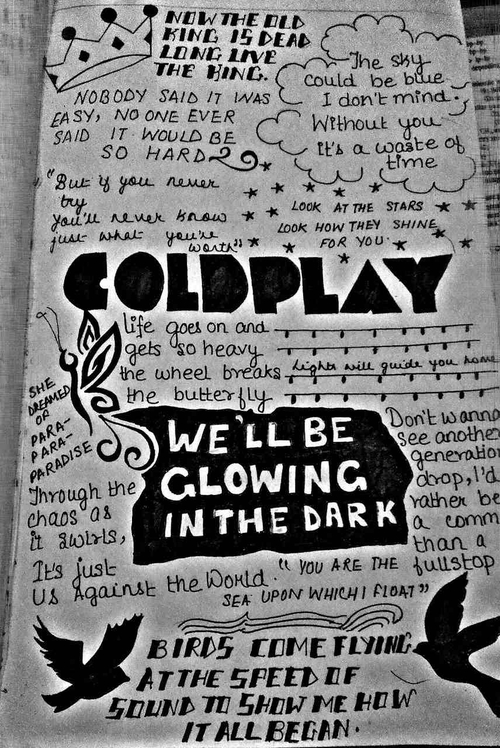 NOW THE OLD
KING IS DEAD
LONG LIVE
THE KING.
The sky
could be blue
I don't mind.
Without you
it's a waste of
time
NOBODY SAID IT WAS
EASY, NO ONE EVER
SAID IT WOULD BE
SO HARD
"But if you never
try
you'll never know
just what you're
worth"
LOOK AT THE STARS
LOOK HOW THEY SHINE
FOR YOU.
COLDPLAY
life goes on and
gets so heavy
the wheel breaks
the butterfly
Lights will guide you home
SHE
DREAMED
OF
PARA-
PARA-
PARADISE
WE'LL BE
GLOWING
IN THE DARK
Don't wanna
see another
generation
drop, I'd
rather be
a comm
than a
fullstop
Through the
chaos as
it swirls,
It's just
us against the World.
"YOU ARE THE
SEA UPON WHICH I FLOAT"
BIRDS COME FLYING
AT THE SPEED OF
SOUND TO SHOW ME HOW
IT ALL BEGAN.